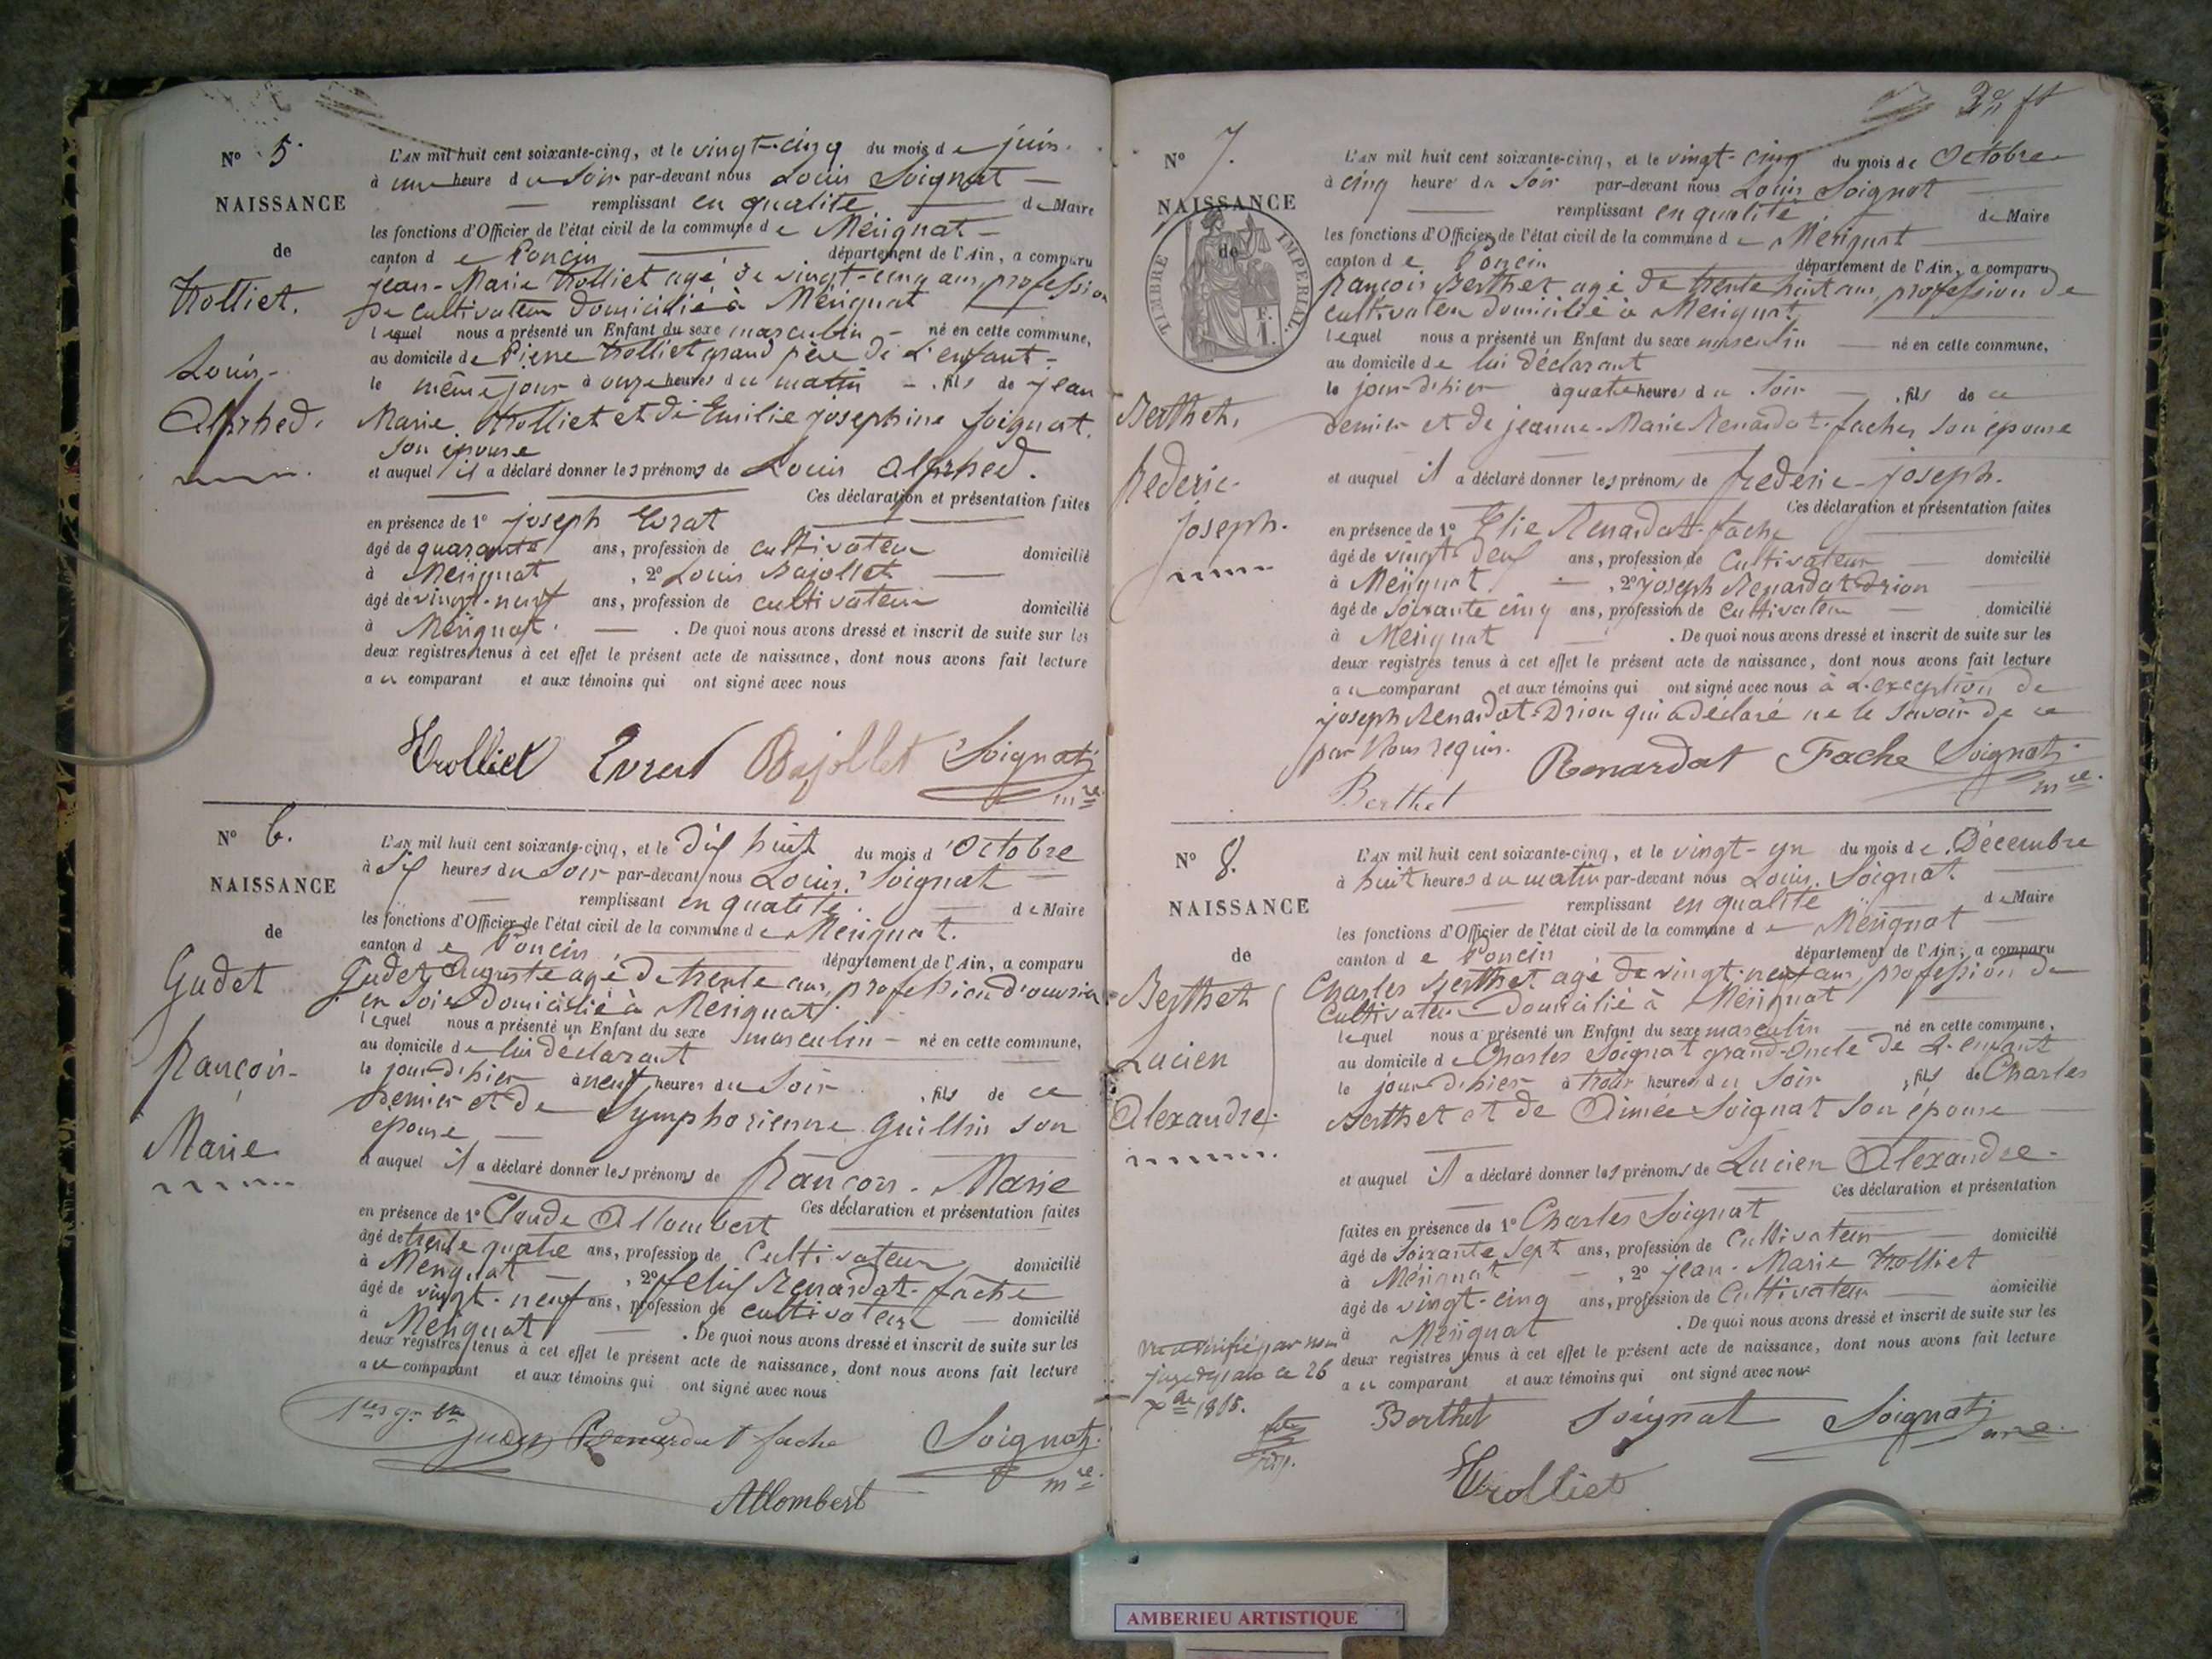 N° 5.
NAISSANCE
de
Trolliet.
Louis-
Alphred.
L'AN mil huit cent soixante-cinq, et le vingt-cinq du mois de juin.
à une heure du Soir par-devant nous Louis Soignat
remplissant en qualité de Maire
les fonctions d'Officier de l'état civil de la commune de Mérignat
canton de Poncin département de l'Ain, a comparu
jean-Marie Trolliet agé de vingt-cinq ans, profession
De cultivateur domicilié à Mérignat
lequel nous a présenté un Enfant du sexe masculin né en cette commune,
au domicile de Pierre Trolliet grand père de L'enfant
le même jour à onze heures du matin fils de jean
Marie Trolliet et de Emilie josephine Soignat.
son épouse
et auquel il a déclaré donner les prénoms de Louis Alphred.
Ces déclaration et présentation faites
en présence de 1° joseph Evrat
âgé de quarante ans, profession de cultivateur domicilié
à Mérignat, 2° Louis Bajollet
âgé de vingt-neuf ans, profession de cultivateur domicilié
à Mérignat. De quoi nous avons dressé et inscrit de suite sur les
deux registres tenus à cet effet le présent acte de naissance, dont nous avons fait lecture
au comparant et aux témoins qui ont signé avec nous
Trolliet Evrat Bajollet Soignat
mre
N° 6.
NAISSANCE
de
Gudet
François-
Marie
L'AN mil huit cent soixante-cinq, et le dix huit du mois d'Octobre
à Six heures du Soir par-devant nous Louis Soignat
remplissant en qualité de Maire
les fonctions d'Officier de l'état civil de la commune de Mérignat.
canton de Poncin département de l'Ain, a comparu
Gudet Auguste agé de trente ans, profession d'ouvrier
en Soie domicilié à Mérignat
lequel nous a présenté un Enfant du sexe masculin né en cette commune,
au domicile de lui déclarant
le jour d'hier à neuf heures du Soir, fils de ce
Dernier et de Symphorienne Guillin son
épouse
et auquel il a déclaré donner les prénoms de François-Marie
Ces déclaration et présentation faites
en présence de 1° Claude Allombert
âgé de trente quatre ans, profession de Cultivateur domicilié
à Mérignat, 2° felix Renardat-fache
âgé de vingt-neuf ans, profession de cultivateur domicilié
à Mérignat. De quoi nous avons dressé et inscrit de suite sur les
deux registres tenus à cet effet le présent acte de naissance, dont nous avons fait lecture
au comparant et aux témoins qui ont signé avec nous
Gudet Renardat fache Soignat
mre
Allombert
N° 7.
NAISSANCE
de
TIMBRE IMPERIAL
F.
1.
Berthet,
frederic-
joseph.
L'AN mil huit cent soixante-cinq, et le vingt-cinq du mois de Octobre
à cinq heure du Soir par-devant nous Louis Soignat
remplissant en qualité de Maire
les fonctions d'Officier de l'état civil de la commune de Mérignat
canton de Poncin département de l'Ain, a comparu
françois Berthet agé de trente huit ans, profession de
cultivateur domicilié à Mérignat
lequel nous a présenté un Enfant du sexe masculin né en cette commune,
au domicile de lui déclarant
le jour d'hier à quatre heures du Soir, fils de ce
Dernier et de jeanne-Marie Renardat-fache, son épouse
et auquel il a déclaré donner les prénoms de frederic-joseph.
Ces déclaration et présentation faites
en présence de 1° Elie Renardat-fache
âgé de vingt-deux ans, profession de Cultivateur domicilié
à Mérignat, 2° joseph Renardat-Drion
âgé de Soixante cinq ans, profession de Cultivateur domicilié
à Mérignat. De quoi nous avons dressé et inscrit de suite sur les
deux registres tenus à cet effet le présent acte de naissance, dont nous avons fait lecture
au comparant et aux témoins qui ont signé avec nous à L'exception de
joseph Renardat-Drion qui a déclaré ne le savoir de ce
par Nous requis.
Renardat Fache Soignat
mre
Berthet
N° 8.
NAISSANCE
de
Berthet
Lucien
Alexandre.
L'AN mil huit cent soixante-cinq, et le vingt-un du mois de Décembre
à huit heures du matin par-devant nous Louis Soignat
remplissant en qualité de Maire
les fonctions d'Officier de l'état civil de la commune de Mérignat
canton de Poncin département de l'Ain, a comparu
Charles Berthet agé de vingt-neuf ans, profession de
Cultivateur domicilié à Mérignat
lequel nous a présenté un Enfant du sexe masculin né en cette commune,
au domicile de Charles Soignat grand-oncle de L'enfant
le jour d'hier à trois heures du Soir, fils de Charles
Berthet et de Aimée Soignat son épouse
et auquel il a déclaré donner les prénoms de Lucien Alexandre.
Ces déclaration et présentation
faites en présence de 1° Charles Soignat
âgé de Soixante Sept ans, profession de Cultivateur domicilié
à Mérignat, 2° jean-Marie Trolliet
âgé de vingt-cinq ans, profession de Cultivateur domicilié
à Mérignat. De quoi nous avons dressé et inscrit de suite sur les
deux registres tenus à cet effet le présent acte de naissance, dont nous avons fait lecture
au comparant et aux témoins qui ont signé avec nous
Vu et vérifié par nous
juge de paix ce 26
Berthet Soignat Soignat
mre
Trolliet
AMBERIEU ARTISTIQUE